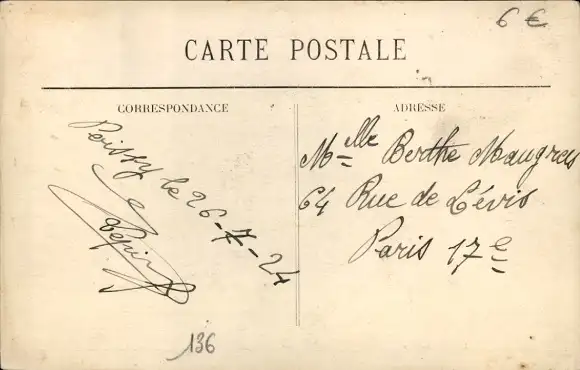 6 €
CARTE POSTALE
CORRESPONDANCE
ADRESSE
Poissy le 26-7-24
Pépin
Melle Berthe Maugras
64 Rue de Lévis
Paris 17e
136